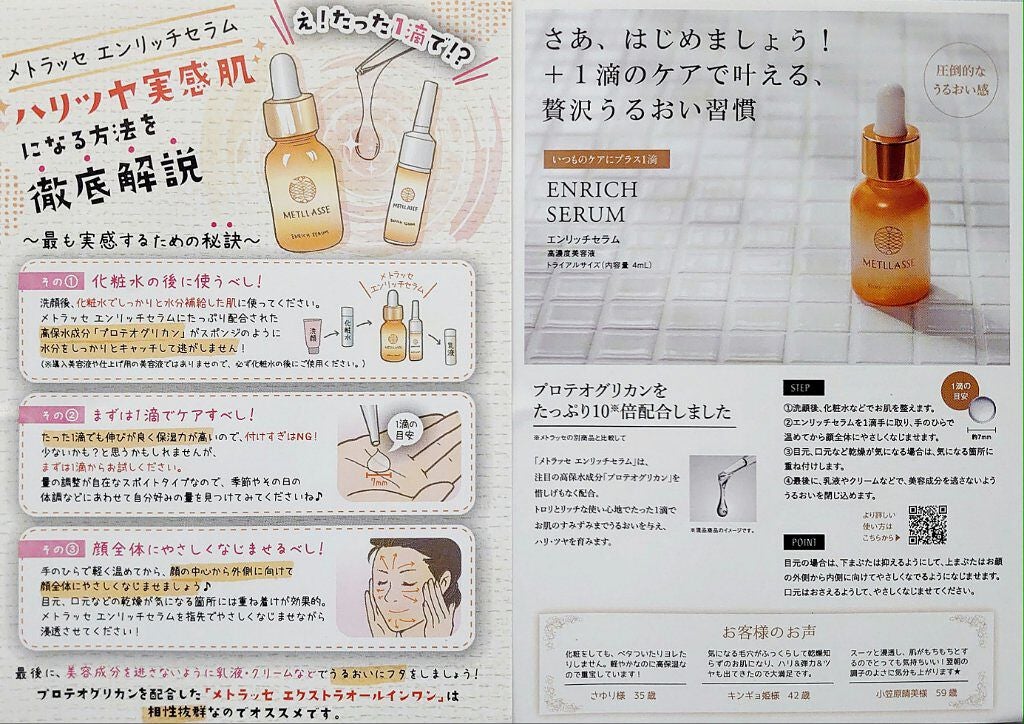 メトラッセ エンリッチセラム
え!たった1滴で!?
ハリツヤ実感肌
になる方法を
徹底解説
METLLASSE
ENRICH SERUM
METLLASSE
～最も実感するための秘訣～
その① 化粧水の後に使うべし!
洗顔後、化粧水でしっかりと水分補給した肌に使ってください。
メトラッセ エンリッチセラムにたっぷり配合された
高保水成分「プロテオグリカン」がスポンジのように
水分をしっかりとキャッチして逃がしません!
(※導入美容液や仕上げ用の美容液ではありませんので、必ず化粧水の後にご使用ください。)
メトラッセ
エンリッチセラム
洗顔
化粧水
乳液
その② まずは1滴でケアすべし!
たった1滴でも伸びが良く保湿力が高いので、付けすぎはNG!
少ないかも?と思うかもしれませんが、
まずは1滴からお試しください。
量の調整が自在なスポイトタイプなので、季節やその日の
体調などにあわせて自分好みの量を見つけてみてくださいね♪
1滴の
目安
7mm
その③ 顔全体にやさしくなじませるべし!
手のひらで軽く温めてから、顔の中心から外側に向けて
顔全体にやさしくなじませましょう♪
目元、口元などの乾燥が気になる箇所には重ね着けが効果的。
メトラッセ エンリッチセラムを指先でやさしくなじませながら
浸透させてください!
最後に、美容成分を逃さないように乳液・クリームなどでうるおいにフタをしましょう!
プロテオグリカンを配合した「メトラッセ エクストラオールインワン」は
相性抜群なのでオススメです。
さあ、はじめましょう!
+1滴のケアで叶える、
贅沢うるおい習慣
圧倒的な
うるおい感
いつものケアにプラス1滴
ENRICH
SERUM
エンリッチセラム
高濃度美容液
トライアルサイズ(内容量 4mL)
METLLASSE
プロテオグリカンを
たっぷり10※倍配合しました
※メトラッセの別商品と比較して
「メトラッセ エンリッチセラム」は、
注目の高保水成分「プロテオグリカン」を
惜しげもなく配合。
トロリとリッチな使い心地でたった1滴で
お肌のすみずみまでうるおいを与え、
ハリ・ツヤを育みます。
※現品商品のイメージです。
STEP
1滴の
目安
約7mm
①洗顔後、化粧水などでお肌を整えます。
②エンリッチセラムを1滴手に取り、手のひらで
温めてから顔全体にやさしくなじませます。
③目元、口元など乾燥が気になる場合は、気になる箇所に
重ね付けします。
④最後に、乳液やクリームなどで、美容成分を逃さないよう
うるおいを閉じ込めます。
より詳しい
使い方は
こちらから▶
POINT
目元の場合は、下まぶたは抑えるようにして、上まぶたはお顔
の外側から内側に向けてやさしくなでるようになじませます。
口元はおさえるようして、やさしくなじませてください。
お客様のお声
化粧をしても、ベタついたりヨレた
りしません。軽やかなのに高保湿な
ので重宝しています!
さゆり様 35歳
気になる毛穴がふっくらして乾燥知
らずのお肌になり、ハリ&弾力&ツ
ヤも出てきたので大満足です。
キンギョ姫様 42歳
スーッと浸透し、肌がもちもちとす
るのでとっても気持ちいい!翌朝の
調子のよさに気分も上がります★
小笠原晴美様 59歳